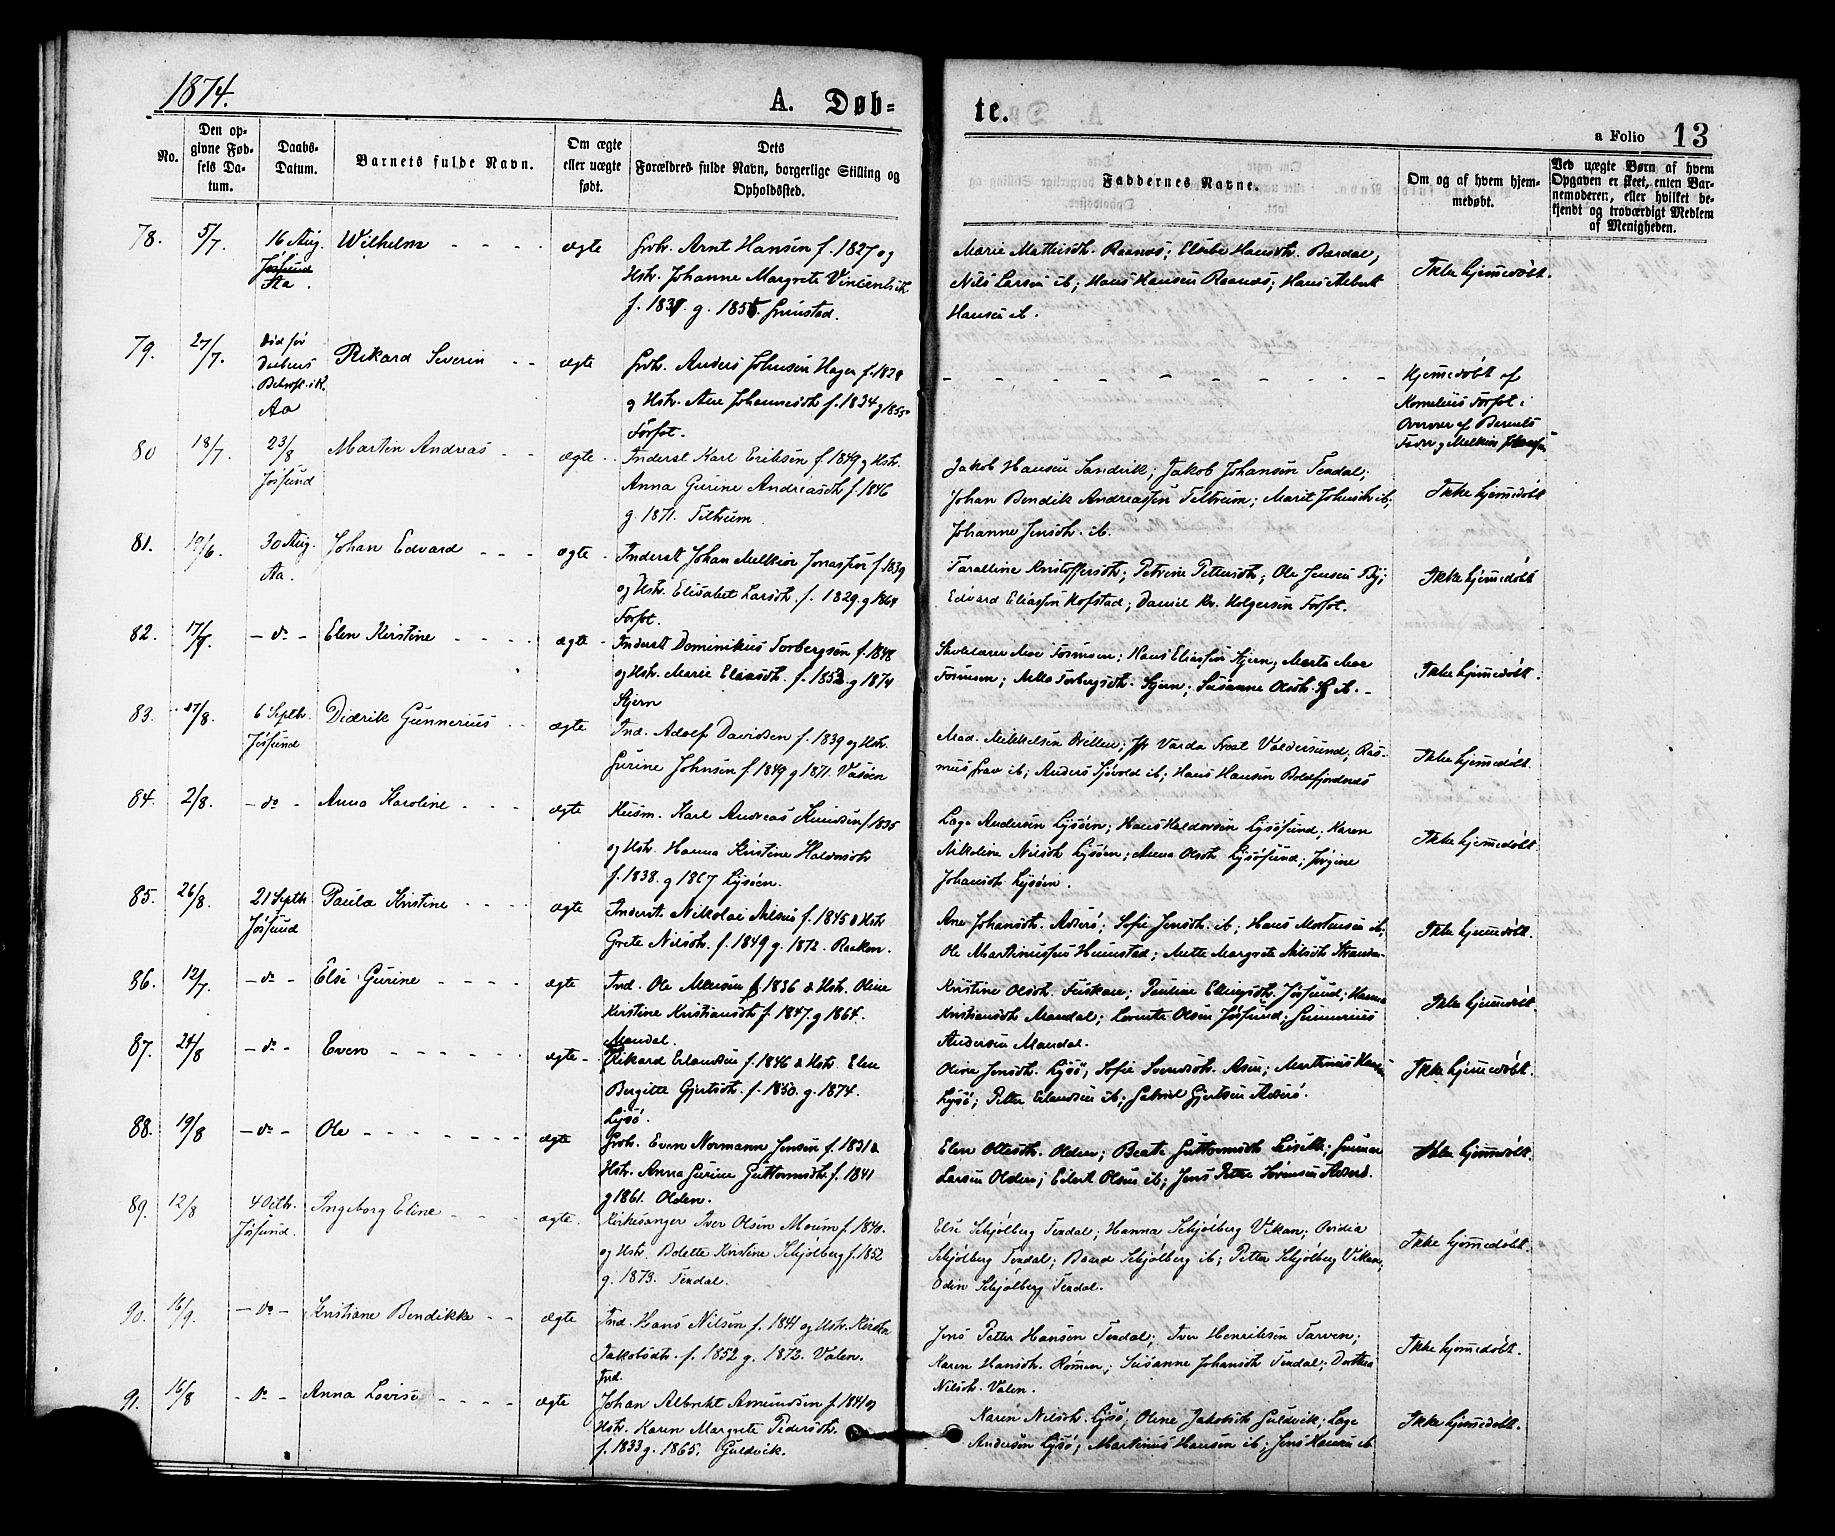 1874.
A. Døb=
te.
a Folio 13
No.
Den op-
givne Fød-
sels Da-
tum.
Daabs-
Datum.
Barnets fulde Navn.
Om ægte
eller uægte
født.
Dets
Forældres fulde Navn, borgerlige Stilling og
Opholdssted.
Faddernes Navne.
Om og af hvem hjem-
medøbt.
Ved uægte Børn af hvem
Opgaven er skeet, enten Bar-
nemoderen, eller hvilket be-
kjendt og troværdigt Medlem
af Menigheden.
78. 5/7. 16 Aug. Wilhelm ægte Grbr. Arnt Hansen f. 1827 og
Aa.
Hstr. Johanne Margrete
Marie Mathisdtr. Raanes; Hansdtr. Bardal;
Nils Larsen ib; Hans Hansen Raanes; Hans Albert
Hansen ib.
Ikke hjemmedøbt.
79. 27/7. Død før
Aa
Rikard Severin ægte Grbr. Anders Johnsen
og Hstr. Ane Johannesdtr. f. 1834 g 1855
Forfot.
Hjemmedøbt af
Kornelius Forfot i
80 18/7. 23/8
Jøssund
Martin Andreas ægte Inderst Karl Eriksen f. 1849 og Hstr.
Anna Gurine Andreasdtr f. 1846
g. 1871. Teltrum.
Jakob Hansen Sandvik; Jakob Johansen Tendal;
Johan Bendik Andreassen Teltrum; Marit Johnsdtr ib;
Johanne Jensdtr. ib.
Ikke hjemmedøbt
81. 19/6. 30 Aug.
Aa.
Johan Edvard ægte Inderst Johan Melkior Jonassen f. 1839
og Hstr. Elisabet Larsdtr. f. 1829. g 1864
Forfot.
Kristoffersdtr; Petrine Pettersdtr; Ole Jensen By;
Edvard Eliassen Hofstad; Daniel Kr. Holgersen Forfot.
Ikke hjemmedøbt
82. 17/7. - do - Elen Kirstine ægte Inderst Dominikus Torbergsen f. 1848
og Hstr. Marie Eliasdtr. f. 1852 g 1874
Stjern
Skolelærer Moe Fosnesen; Hans Eliassen Stjern; Marta Moe
Torbergsdtr. Stjern; Susanne Olsdtr. ib.
Ikke hjemmedøbt.
83. 17/8. 6 Septbr.
Jøssund
Didrik Gunnerius ægte Ind. Adolf Davidsen f. 1839 og Hstr.
Gurine Johnsen f. 1849 g 1871. Vasøen
Mad. Mikkelsen Valdersund; Ras-
mus Grav ib; Anders Sjøvold ib; Hans Hansen Botnfjordnes
Ikke hjemmedøbt.
84. 2/8. - do - Anna Karoline ægte Husm. Karl Andreas Knudsen f. 1835
og Hstr. Hanna Kristine
f. 1838. g 1867 Lysøen.
Lage Andersen Lysøen; Hans Haldorsen Lysøsund; Karen
Nikoline Nilsdtr Lysøen; Anna Olsdtr Lysøsund; Jørgine
Johansdtr Lysøen.
Ikke hjemmedøbt
85. 26/8. 21 Septbr
Jøssund
Paula Kristine ægte Inderst Nikolai Nilsen f. 1845 & Hstr
Grete Nilsdtr. f. 1849 g. 1872. Raaken.
Ane Johansdtr. Asserø; Sofie Jensdtr. ib; Hans Mortensen ib;
Ole Martinussen Hunnstad; Mette Margrete Nilsdtr
Ikke hjemmedøbt.
86. 12/7. - do - Else Gurine ægte Ind. Ole Monsen f. 1836 & Hstr. Oline
Kirstine Kristiansdtr f. 1847. g 1864.
Mandal.
Kristine Olsdtr. Fuskan; Pauline Ellingsdtr. Jøssund; Hanna
Kristiansdtr Mandal; Lorents Olsen Jøssund; Gunnerius
Andersen Mandal.
Ikke hjemmedøbt.
87. 24/8 - do - Even ægte Rikard Erlandsen f. 1846 & Hstr. Elen
Bergitte Gjertsdtr. f. 1850. g. 1874.
Lysø.
Oline Jensdtr. Lysø; Sofie Svendsdtr. Martinus Hansen
Lysø; Petter Erlandsen ib; Gabriel Gjertsen Asserø.
Ikke hjemmedøbt.
88. 19/8 - do - Ole ægte Grbr. Even Normann Jensen f. 1831 &
Hstr. Anna Gurine Guttormsdtr. f. 1841
g 1861. Olden.
Elen Ottesdtr. Olden; Beate Guttormsdtr Gunnar
Larsen Olden; Edert Olsen ib; Jens Petter Sørensen
Ikke hjemmedøbt.
89. 12/8 4 Octbr.
Jøssund.
Ingeborg Eline ægte. Kirkesanger Iver Olsen Moum f. 1840.
og Hstr. Bolette Kristine Schjølberg f. 1852
g. 1873. Tendal.
Else Schjølberg Tendal; Hanna Schjølberg Vikan; Ovidia
Schjølberg Tendal; Baard Schjølberg ib; Petter Schjølberg Vikan;
Odin Schjølberg Tendal.
Ikke hjemmedøbt.
90. 16/9. - do - Kristiane Bendikke ægte Ind. Hans Nilsen f. 1841 og Hstr. Kirstin
Jakobsdtr. f. 1852 g. 1872. Valen.
Jens Petter Hansen Tendal; Iver Henriksen Tarven;
Karen Hansdtr. Rømen; Susanne Johansdtr Tendal; Dorthea
Nilsdtr. Valen.
Ikke hjemmedøbt.
91. 16/8 - do - Anna Lovise ægte Ind.
Johan Albrekt Amundsen f. 1841 og
Hstr. Karen Margrete Pedersdtr.
f. 1833 g. 1865. Guldvik.
Karen Nilsdtr. Lysø; Oline Jakobsdtr Guldvik; Lage
Andersen Lysø; Martinus Hansen ib; Jens Hansen ib
Ikke hjemmedøbt.